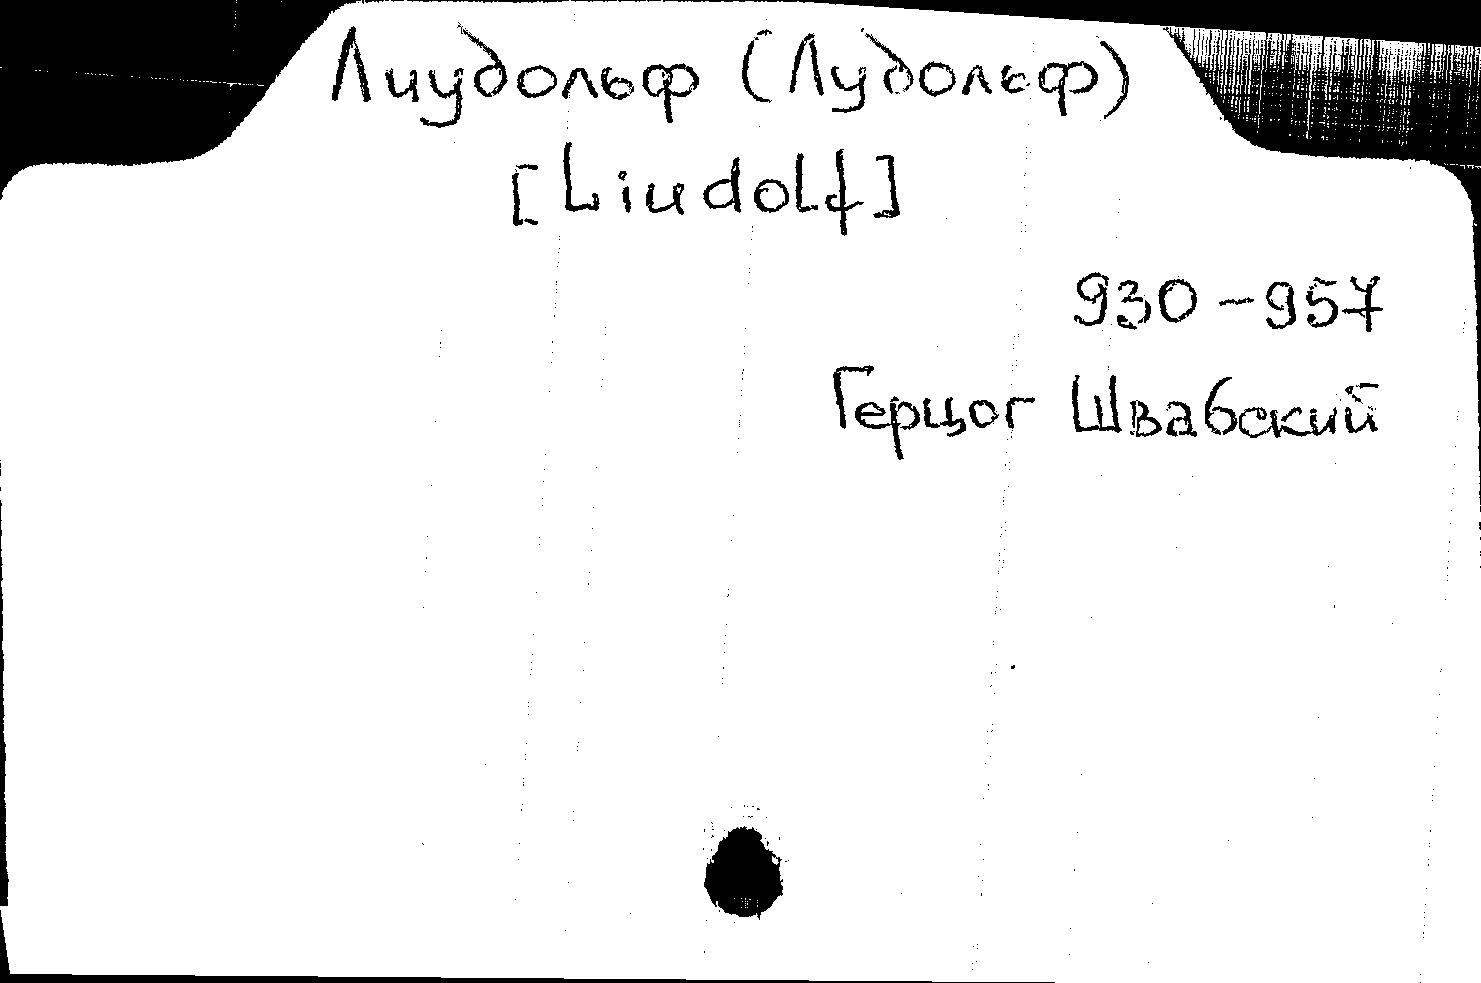 Лиудольф (Лудольф)
[Liudolf]
930-957
Герцог Швабский